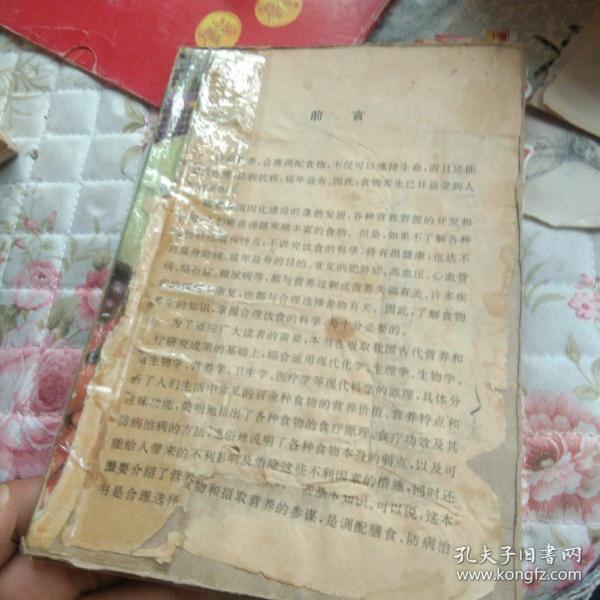 前言
合理调配食物,不仅可以维持生命,而且还能
防病抗病,延年益寿。因此,食物养生已日益受到人
国四化建设的蓬勃发展,各种营养资源的开发和
获得越来越丰富的食物。但是,如果不了解各种
特点,不讲究饮食的科学,将有损健康,也达不
防病,延年益寿的目的。常见的肥胖症,高血压、心血管
病,结石症,糖尿病等,都与营养过剩或营养失调有关。许多疾
恢复,也都与合理选择食物有关。因此,了解食物
养生的知识,掌握合理饮食的科学,是十分必要的。
为了适应广大读者的需要,本书在吸取我国古代营养和
疗研究成果的基础上,综合运用现代化学、生理学、生物学、
生物学、营养学、卫生学、医疗学等现代科学的原理,具体分
析了人们生活中常见的百余种食物的营养价值,营养特点和
性味功能,简明地指出了各种食物的食疗原理,食疗功效及其
防病治病的方法,通俗地说明了各种食物本身的弱点,以及可
能给人带来的不利影响及消除这些不利因素的措施,同时还
扼要介绍了营养 基本知识。可以说,这本
书是合理选择食物和摄取营养的参谋,是调配膳食、防病治
孔夫子旧书网
www.kongfz.com